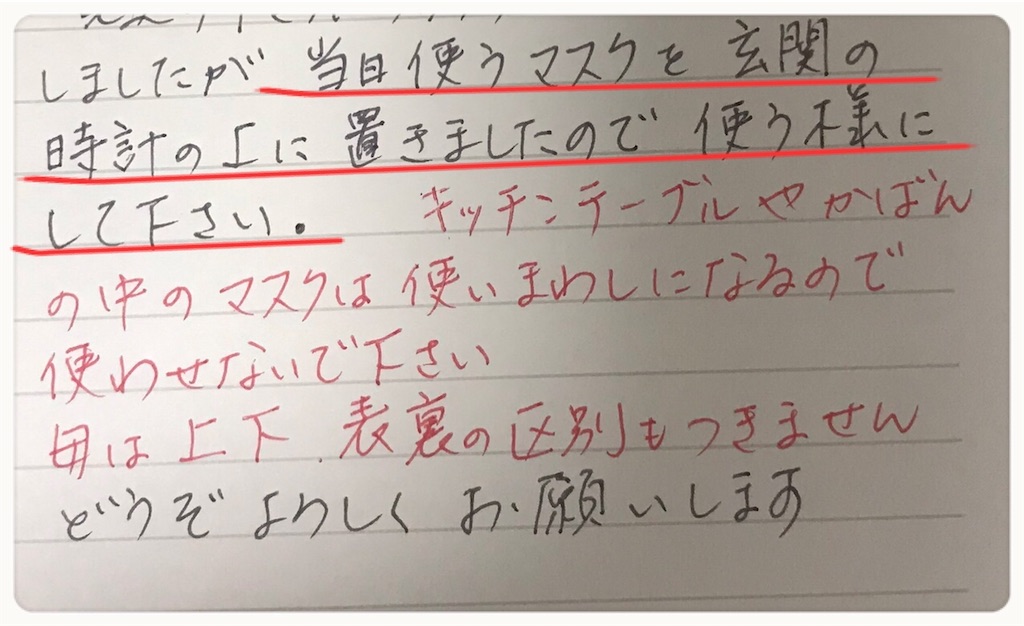 しましたが 当日使うマスクを 玄関の
時計の上に 置きましたので 使う様に
して下さい. キッチンテーブルやかばん
の中のマスクは 使いまわしになるので
使わせないで下さい
母は上下.表裏の区別もつきません
どうぞよろしくお願いします